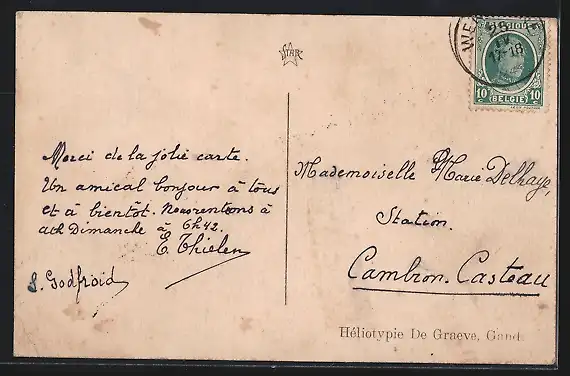 STAR
Merci de la jolie carte.
Un amical bonjour à tous
et à bientôt. Nous rentrons à
Ath Dimanche à 6h42.
E Thielen
S. Godfroid
BELGIQUE
17-18
10c BELGIË 10c
Mademoiselle Marie Delhaye,
Station.
Cambron-Casteau
Héliotypie De Graeve, Gand.